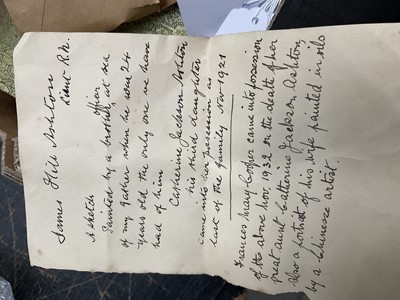 James Hill Ashton
Lieut. R.N.
A sketch
Painted by a brother officer, at sea
of my father when he was 24
years old the only one we have
had of him
Catherine Jackson Ashton
his third daughter
came into her possession as
last of the family Nov 1921
Frances Mary Cooper came into possession
of the above Nov, 1932 on the death of her
great aunt Catherine Jackson Ashton,
also a portrait of his wife painted in oils
by a Chinese artist.